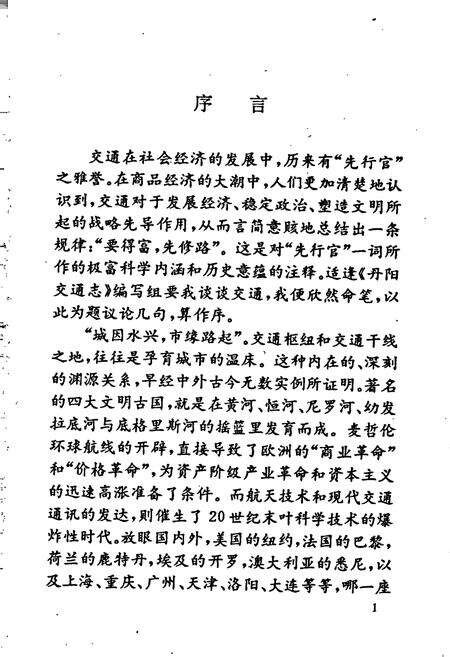 序 言
交通在社会经济的发展中，历来有“先行官”
之雅誉。在商品经济的大潮中，人们更加清楚地认
识到，交通对于发展经济、稳定政治、塑造文明所
起的战略先导作用，从而言简意赅地总结出一条
规律：“要得富，先修路”。这是对“先行官”一词所
作的极富科学内涵和历史意蕴的注释。适逢《丹阳
交通志》编写组要我谈谈交通，我便欣然命笔，以
此为题议论几句，算作序。
“城因水兴，市缘路起”。交通枢纽和交通干线
之地，往往是孕育城市的温床。这种内在的、深刻
的渊源关系，早经中外古今无数实例所证明。著名
的四大文明古国，就是在黄河、恒河、尼罗河、幼发
拉底河与底格里斯河的摇篮里发育而成。麦哲伦
环球航线的开辟，直接导致了欧洲的“商业革命”
和“价格革命”，为资产阶级产业革命和资本主义
的迅速高涨准备了条件。而航天技术和现代交通
通讯的发达，则催生了20世纪末叶科学技术的爆
炸性时代。放眼国内外，美国的纽约，法国的巴黎，
荷兰的鹿特丹，埃及的开罗，澳大利亚的悉尼，以
及上海、重庆、广州、天津、洛阳、大连等等，哪一座
1